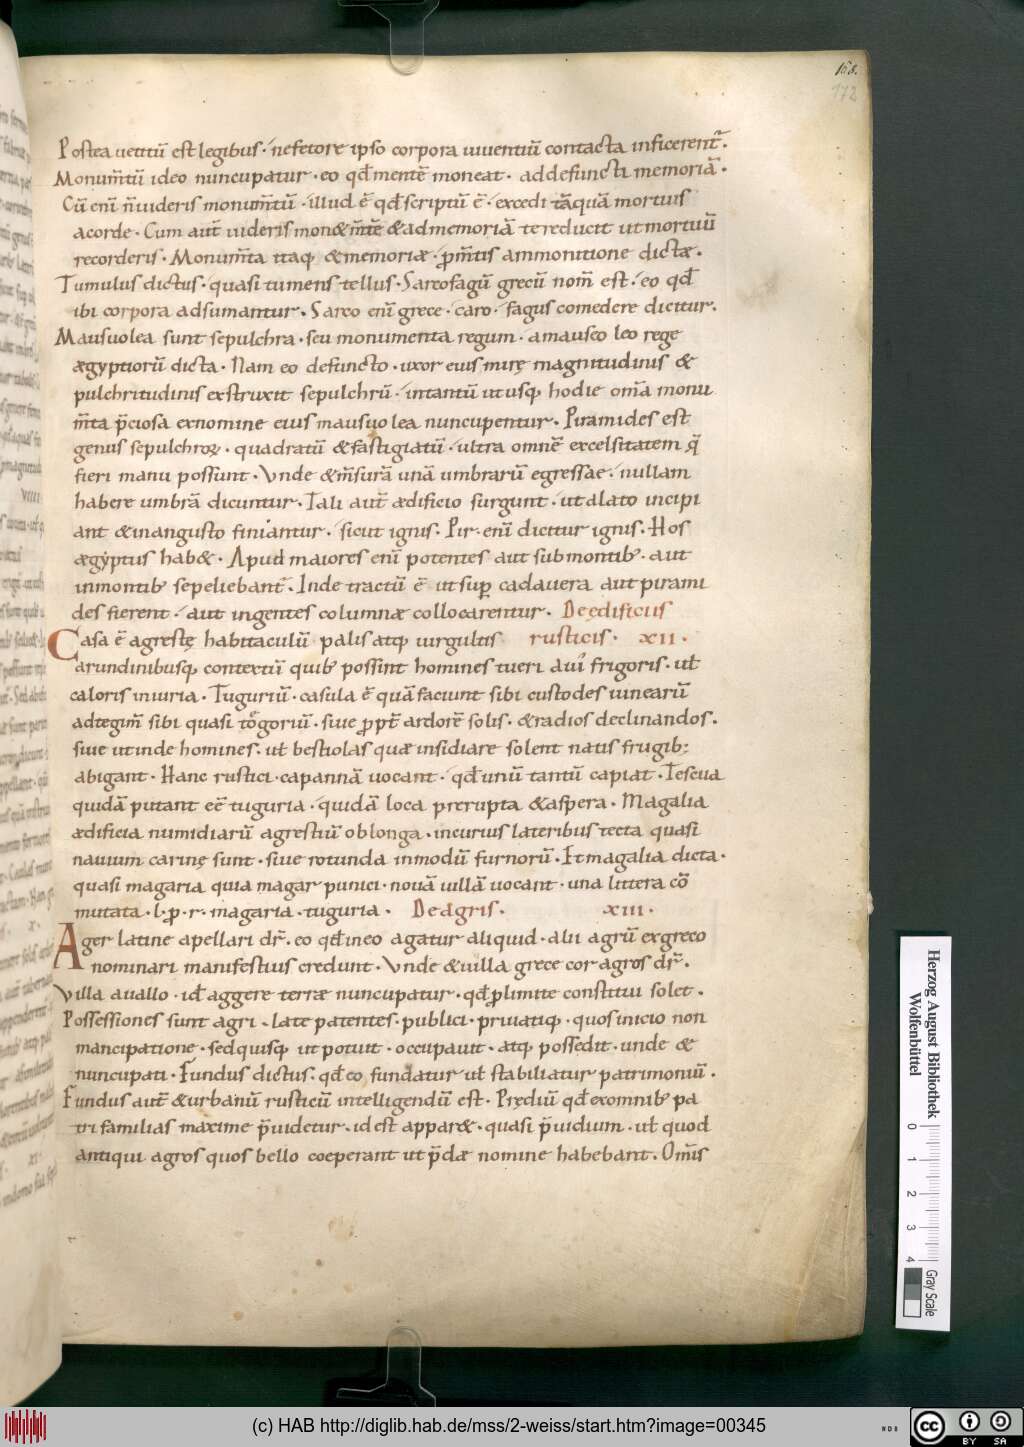 168.
172
Postea uetitū est legibus· ne fetore ipso corpora uiuentiū contacta inficerent̄.
Monum̄tū ideo nuncupatur· eo qđ mentē moneat· ad defuncti memoriā·
Cū eni̅ n̄ uideris monum̄tū· illud ē qđ scriptū ē· excedi tāquā mortuus
acorde· Cum aut̄ uideris mon&m̄tē & ad memoriā te reducit ut mortuū
recorderis· Monum̄ta itaq; & memoriæ· p̱ m̄tis ammonitione dictæ·
Tumulus dictus· quasi tumens tellus· Sarcofagū grecū nom̄ est· eo qđ
ibi corpora adsumantur· Sarco eni̅ grece· caro· fagus comedere dicitur·
Mausuolea sunt sepulchra· seu monumenta regum· a mauseo leo rege
ægyptiorū dicta· Nam eo defuncto· uxor eius mirę magnitudinis &
pulchritudinis exstruxit sepulchrū· intantū ut usq; hodie om̄a monu
m̄ta p̄ciosa ex nomine eius mausuolea nuncupentur· Piramides est
genus sepulchroꝝ· quadratū & fastigiatū· ultra omnē excelsitatem q̄
fieri manu possunt· Vnde & m̄surā unā umbrarū egressae· nullam
habere umbrā dicuntur· Tali aut̄ ædificio surgunt· ut a lato incipi
ant & in angusto finiantur· sicut ignis· Pir· eni̅ dicitur ignis· Hos
ægẏptus hab&· Apud maiores eni̅ potentes aut sub montib; aut
in montib; sepeliebant̄· Inde tractū ē ut sup̱ cadauera aut pirami
des fierent· aut ingentes columnæ collocarentur· De ędificiis
Casa ē agrestę habitaculū palis atq; uirgultis rusticis· XII·
arundinibusq; contextū quib; possint homines tueri a ui frigoris· uł
caloris iniuria· Tuguriū· casula ē quā faciunt sibi custodes uinearū
ad tegim̄ sibi quasi togoriū· siue p̱pt̄ ardorē solis· & radios declinandos·
siue ut inde homines· uł bestiolas quæ insidiare solent natis frugib;
abigant· Hanc rustici· capannā uocant· qđ unū tantū capiat· Tescua
quidā putant eē tuguria· quidā loca prerupta & aspera· Magalia
ædificia numidiarū agrestiū oblonga· incuruis lateribus tecta quasi
nauium carinę sunt· siue rotunda in modū furnorū· Et magalia dicta·
quasi magaria quia magar punici· nouā uillā uocant· una littera cō
mutata· l· p̱· r· magaria· tuguria· De agris· XIII·
Ager latine apellari dr̄· eo qđ in eo agatur aliquid· alii agrū ex greco
nominari manifestius credunt· Vnde & uilla grece cor agros dr̄·
Villa a uallo· id aggere terræ nuncupatur· qđ p̱ limite constitui solet·
Possessiones sunt agri· late patentes· publici· priuatiq;· quos inicio non
mancipatione· sed quisq; ut potuit· occupauit· atq; possedit· unde &
nuncupati· Fundus dictus· qđ eo fundatur uł stabiliatur patrimoniū·
Fundus aut̄ & urbanū rusticū intelligendū est· Prędiū qđ ex omnib; pa
tri familias maxime p̄uidetur· id est appar&· quasi p̄uidium· uł quod
antiqui agros quos bello coeperant ut p̄dæ nomine habebant· Om̄is
Herzog August Bibliothek
Wolfenbüttel
0 1 2 3 4
Gray Scale
(c) HAB http://diglib.hab.de/mss/2-weiss/start.htm?image=00345
WDB
cc BY SA